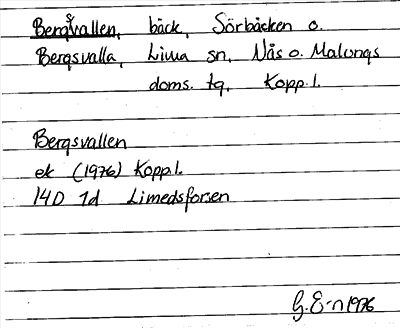 Bergsvallen, bäck, Sörbäcken o.
Bergsvalla, Lima sn, Nås o. Malungs
doms. tg, Kopp. l.
Bergsvallen
ek (1976) Kopp l.
14D 1d Limedsforsen
G. E-n 1976